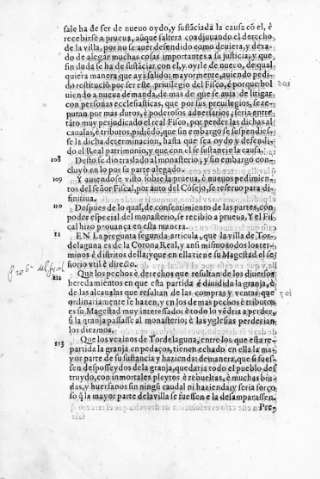 sale ha de ser de nueuo oydo, y sustãciada la causa cõ el, è
recebirse a prueua, aũque saliera coadjuuando el derecho
de la villa, por no se auer defendido como deuiera, y dexa-
do de alegar muchas cosas importantes a su justicia: y que
sin duda se ha de sustãciar con el, y oyrle de nueuo, de qual
quiera manera que aya salido: mayormente, auiendo pedi-
do restituciõ por ser este priuilegio del Fisco, è porque bol
uiendo a nueua demanda, de mas de que se auia de litigar
con personas ecclesiasticas, que por sus preuilegios, se re-
putan por mas duros, y poderosos aduersarios, seria entre
tãto muy perjudicado el real Fisco, por perder las dichas al
caualas, è tributos, pidiẽdo, que sin embargo se suspendies-
se la dicha determinacion, hasta que sea oydo y defendi-
do el Real patrimonio, y que con el se sustancie la causa.
108 Desto se dio traslado al monasterio, y sin embargo con-
cluyò no lo por su parte alegado.
109 Y auiendose visto sobre la prueua, è nueuos pedimien-
tos del señor Fiscal, por auto del Cõsejo, se reseruo para di-
finitiua.
110 Despues de lo qual, de consentimiento de las partes, con
poder especial del monasterio, se recibio a prueua. Y el Fis-
cal hizo prouança en esta manera.
EN La pregunta segunda articula, que la villa de Tor-
delaguna es de la Corona Real, y ansi mismo todos los ter-
minos è distritos della: y que en ella tiene su Magestad el se
ñorio vtil è directo.
112 Que los pechos è derechos que resultan de los diuersos
heredamientos en que esta partida è diuidida la granja, è
de las alcaualas que resultan de las compras y ventas que
ordinariamente se hazen, y en los de mas pechos è tributos
es su Magestad muy interessado: è todo lo vẽdria a perder,
si la granja passasse al monasterio; è las yglesias perderian
los diezmos.
113 Que los vezinos de Tordelaguna, entre los que esta re-
partida la granja en pedaços, tienen echado en ella la ma-
yor parte de su sustancia y hazienda: de manera, que si fues-
sen desposseydos de la granja, quedaria todo el pueblo des
truydo, con inmortales pleytos è rebueltas, è muchas biu-
das, y huerfanos sin ningũ caudal ni hazienda; y seria força
so q̃ la mayor parte de la villa se fuessen è la desamparassen.
Pre-